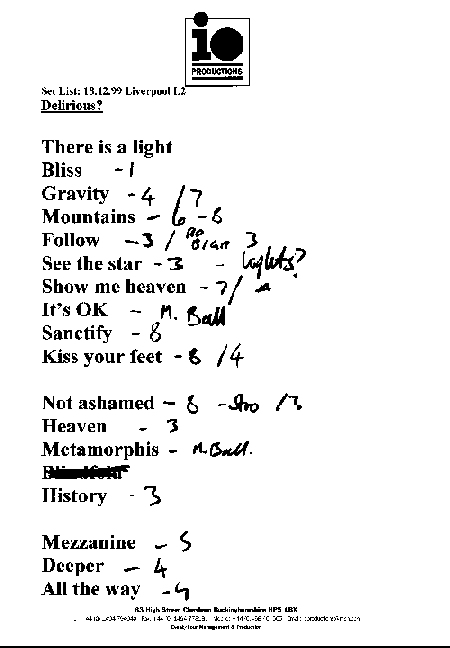 io
PRODUCTIONS
Set List: 13.12.99 Liverpool L2
Delirious?
There is a light
Bliss - 1
Gravity - 4 / 7
Mountains - 6 - 8
Follow - 3 / 3
See the star - 3 - Lights?
Show me heaven - 7 /
It's OK - M. Ball
Sanctify - 8
Kiss your feet - 8 / 4
Not ashamed - 8 / 7
Heaven - 3
Metamorphis - M. Ball.
History - 3
Mezzanine - 5
Deeper - 4
All the way - 4
63 High Street Chesham Buckinghamshire HP5 1BX